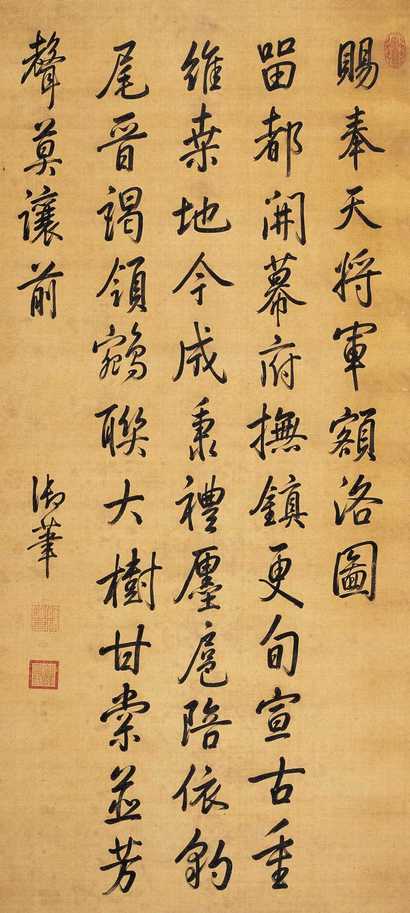 賜奉天将軍額洛圖
留都開幕府撫鎮更旬宣古重
維桑地今成秉禮廛扈陪依豹
尾晉謁領鵷聯大樹甘棠並芳
聲莫讓前
御筆